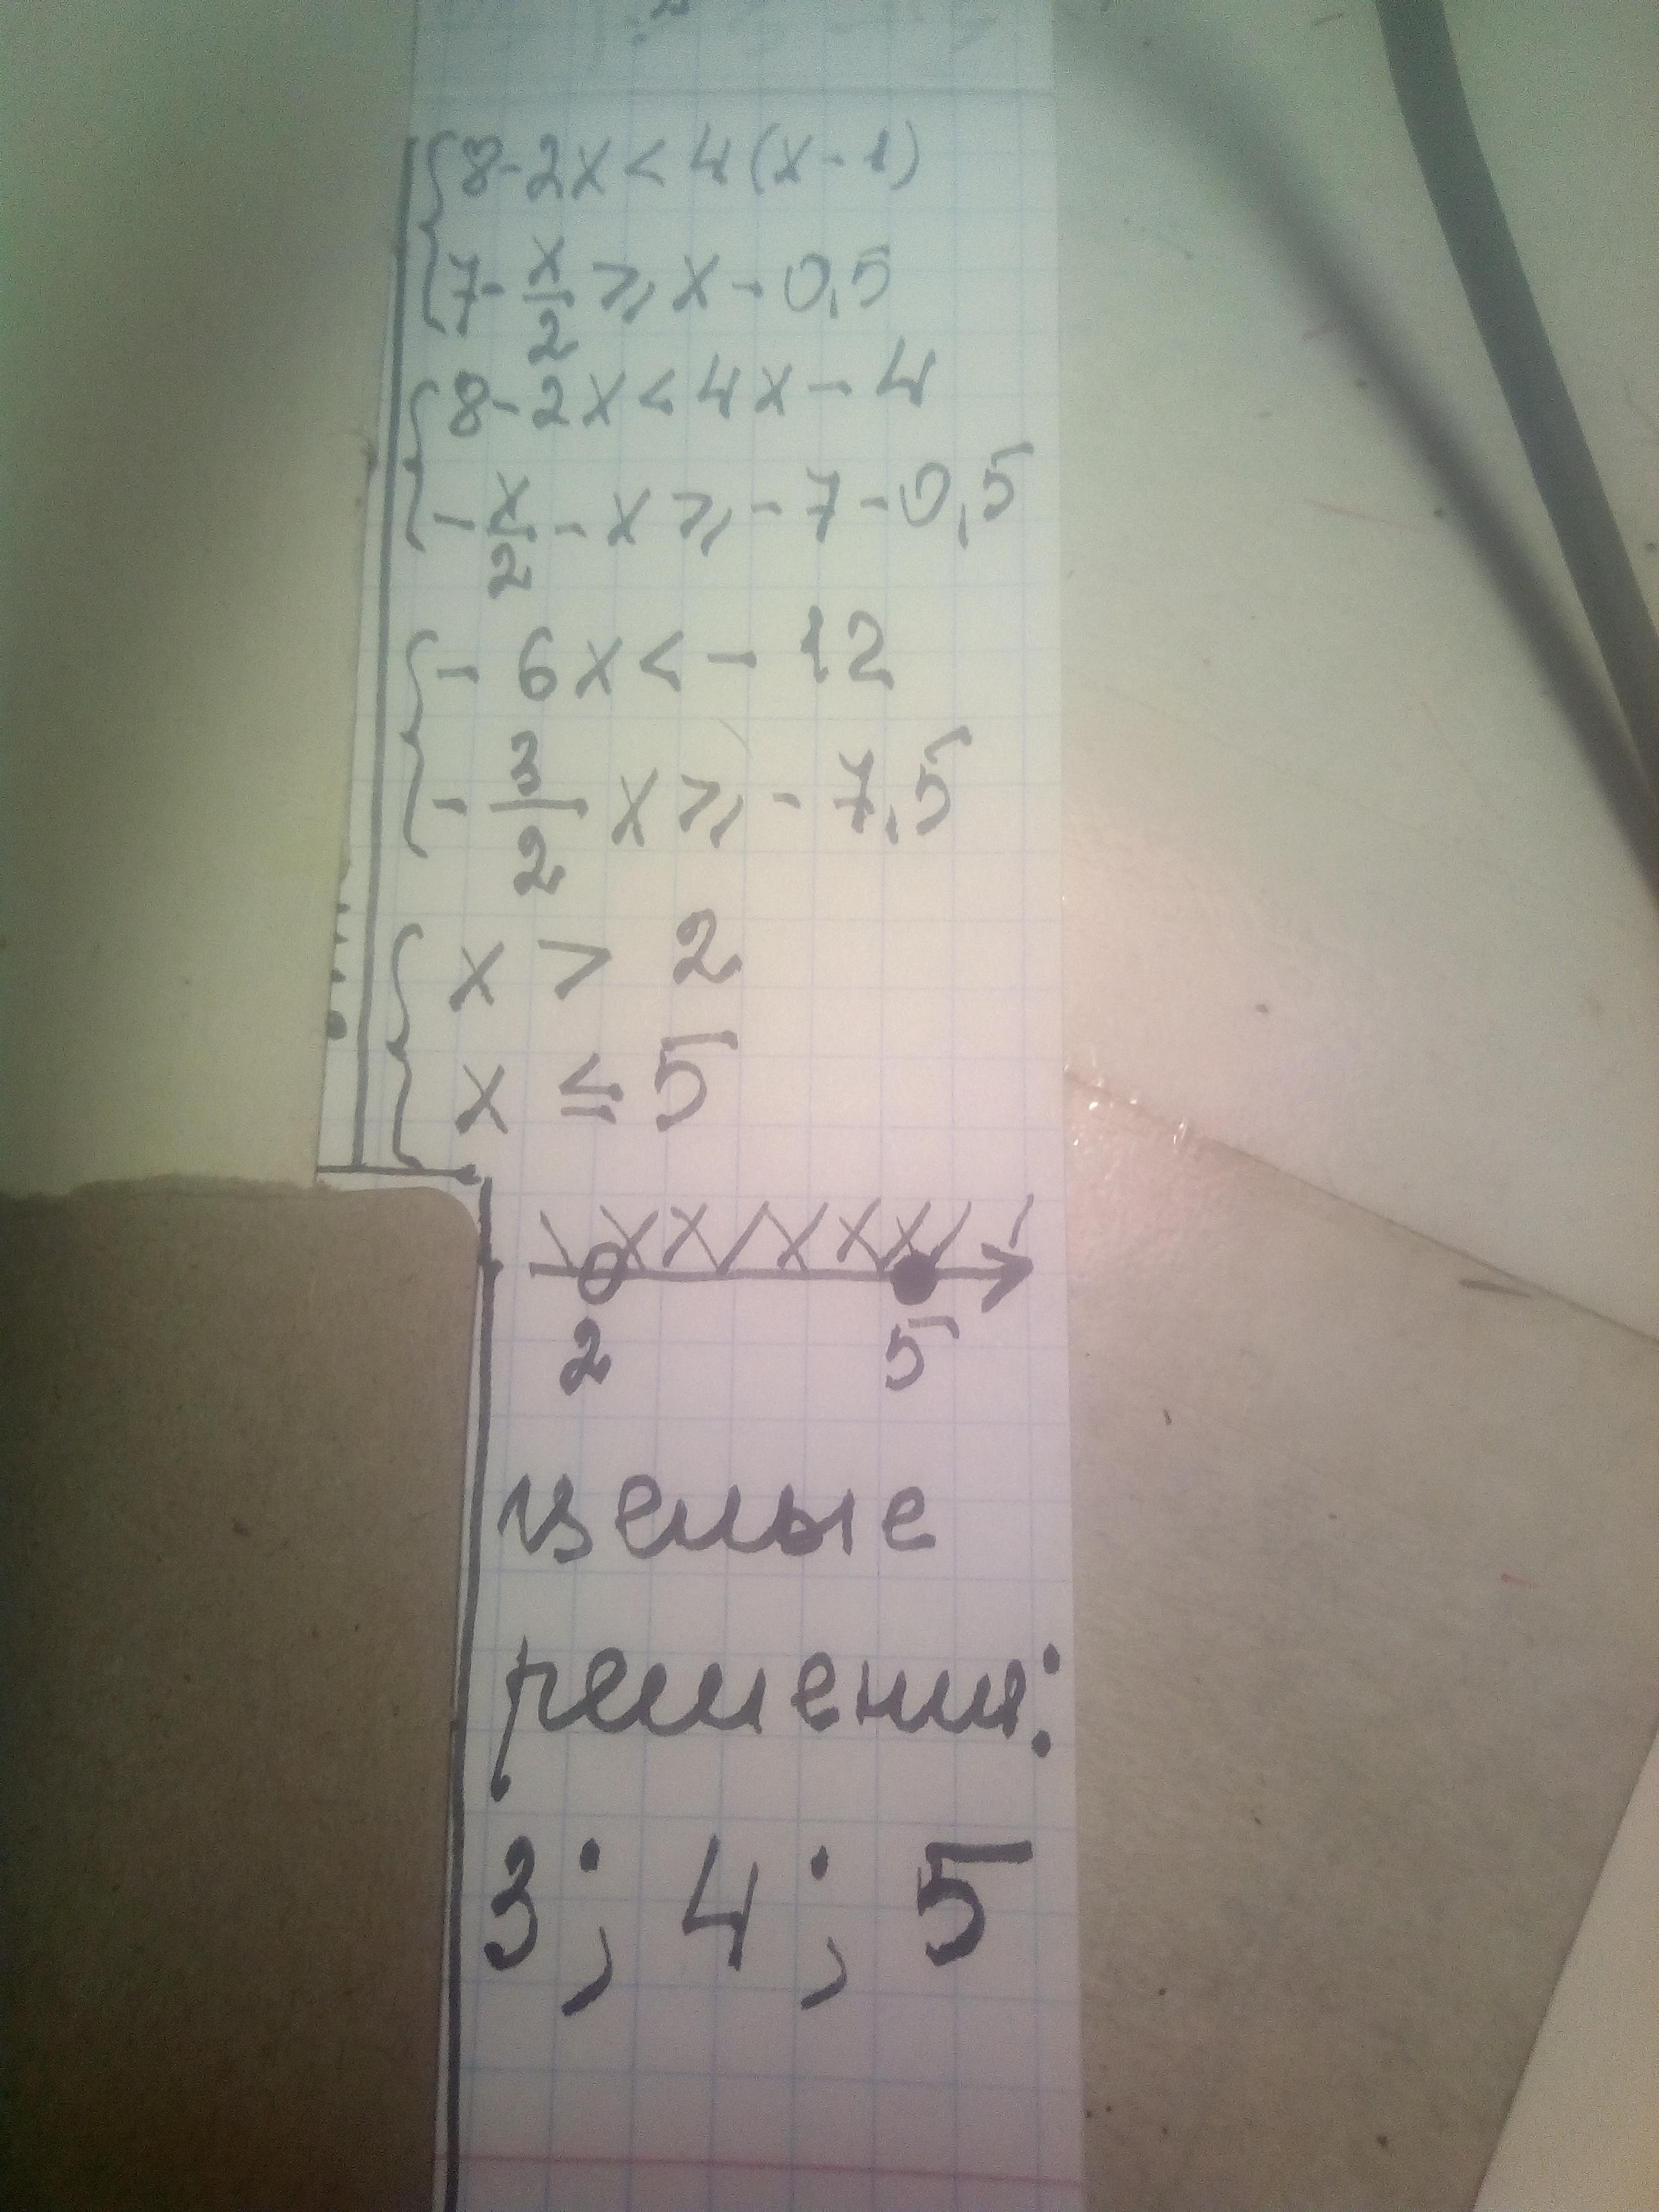 8-2x<4(x-1)
7-x/2⩾x-0,5
8-2x<4x-4
-x/2-x⩾-7-0,5
-6x<-12
-3/2x⩾-7,5
x > 2
x ≤ 5
2 5
целые
решения:
3; 4; 5